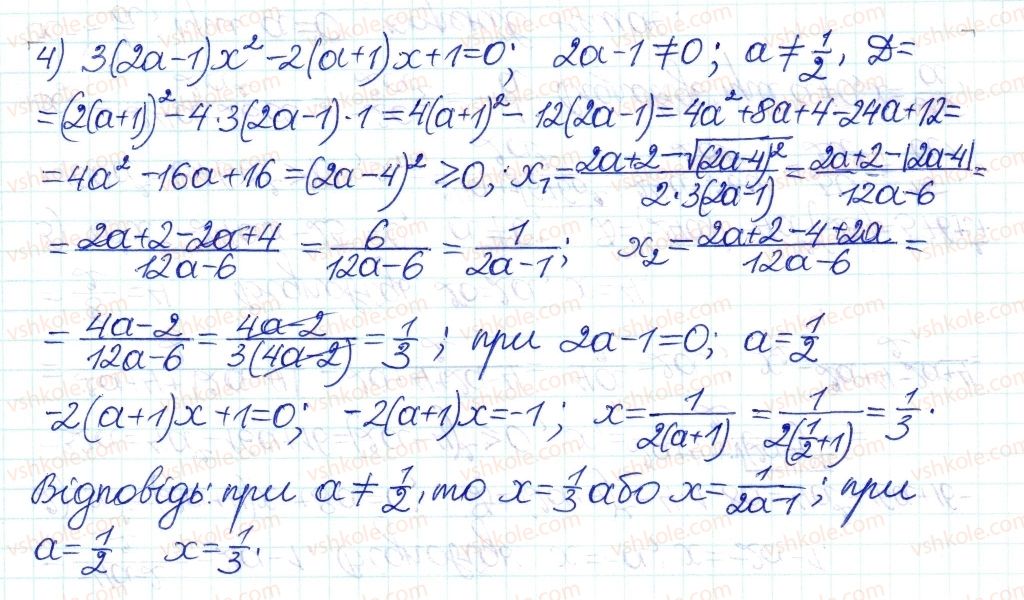 4) 3(2a-1)x² -2(a+1)x+1=0; 2a-1≠0; a≠1/2, D=
=(2(a+1))² -4·3(2a-1)·1=4(a+1)² - 12(2a-1)=4a²+8a+4-24a+12=
=4a² -16a+16=(2a-4)² ≥0; x₁=(2a+2-√(2a-4)²)/(2·3(2a-1))=(2a+2-|2a-4|)/(12a-6)=
=(2a+2-2a+4)/(12a-6) = 6/(12a-6) = 1/(2a-1); x₂=(2a+2-4+2a)/(12a-6)=
=(4a-2)/(12a-6)=(4a-2)/(3(4a-2))=1/3; при 2a-1=0; a=1/2
-2(a+1)x+1=0; -2(a+1)x=-1; x=1/(2(a+1))=1/(2(1/2+1))=1/3.
Відповідь: при a≠1/2, то x=1/3 або x=1/(2a-1); при
a=1/2 x=1/3.